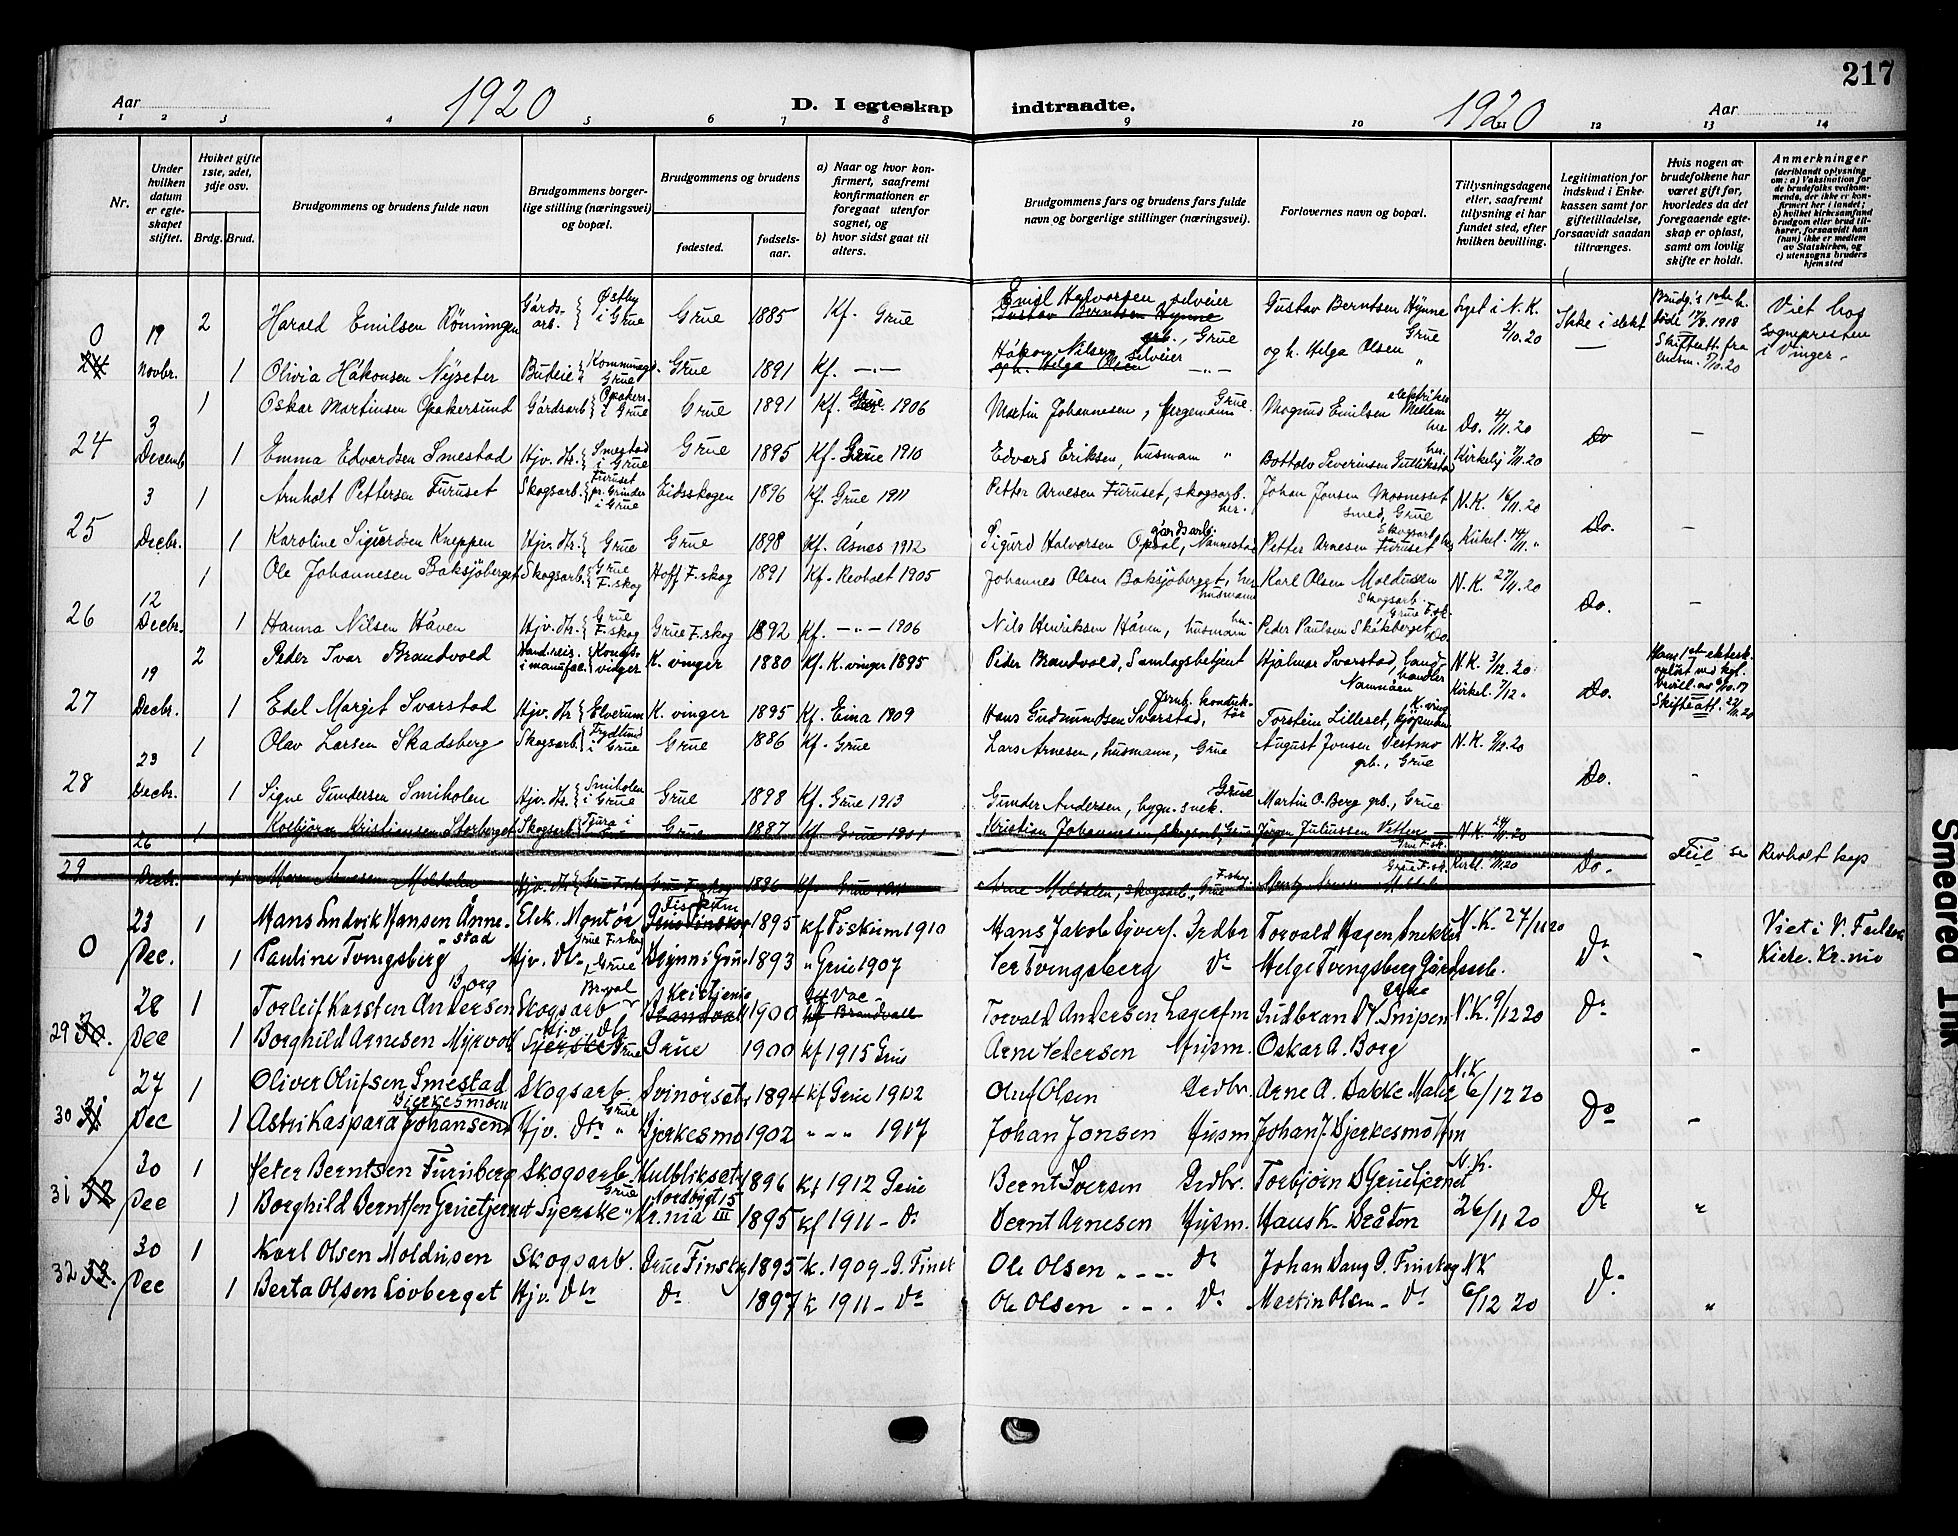 217
Aar 1920 D. I egteskap indtraadte. 1920 Aar
1 2 3 4 5 6 7 8 9 10 11 12 13 14
Nr.
Under hvilken datum er egteskapet stiftet.
Hvilket gifte 1ste, 2det, 3dje osv.
Brdg. Brud.
Brudgommens og brudens fulde navn
Brudgommens borgerlige stilling (næringsvei) og bopæl.
Brudgommens og brudens
fødested. fødselsaar.
a) Naar og hvor konfirmert, saafremt konfirmationen er foregaat utenfor sognet, og
b) hvor sidst gaat til alters.
Brudgommens fars og brudens fars fulde navn og borgerlige stillinger (næringsvei).
Forlovernes navn og bopæl.
Tillysningsdagene eller, saafremt tillysning ei har fundet sted, efter hvilken bevilling.
Legitimation for indskud i Enkekassen samt for giftetilladelse, forsaavidt saadan tiltrænges.
Hvis nogen av brudefolkene har været gift før, hvorledes da det foregaaende egteskap er opløst, samt om lovlig skifte er holdt.
Anmerkninger (deriblandt oplysning om: a) Vaksination for de brudefolks vedkommende, der ikke er konfirmert her i landet; b) hvilket kirkesamfund brudgom eller brud tilhører, forsaavidt han (hun) ikke er medlem av Statskirken, og c) utensogns bruders hjemsted
0 19 2 Harald Emilsen Rönningen Gårdsarb. Østby i Grue Grue 1885 Kf. Grue Emil Halvorsen selveier Gustav Berntsen Hynne Grue Lyst i N.K. 2/10.20 Ikke i slekt Brudg.s 1ste h. døde 17/8.1918 Skifteatt. fra 7/10.20 Viet hos sognepresten i Vinger
Novbr. 1 Olivia Håkonsen Nyseter Budeie Grue 1891 Kf. —"— Håkon Nilsen selveier —"— og h. Helga Olsen "
24 3 1 Oskar Martinsen Opakersund Gårdsarb. Opakers. i Grue Grue 1891 Kf. Grue 1906 Martin Johannesen, fergemann Grue Magnus Emilsen Do. 4/11.20 Do —
Decemb 1 Emma Edvardsen Smestad Hjv. Dtr. Smestad i Grue Grue 1895 Kf. Grue 1910 Edvard Eriksen, husmann " Bottolv Severinsen Gullikstad Kirkelig 7/11.20
25 3 1 Arnholt Pettersen Furuset Skogsarb. Furuset pr. Grinder i Grue Eidsskogen 1896 Kf. Grue 1911 Petter Arnesen Furuset, skogsarb. her. Johan Jonsen Mosnesset smed, Grue N.K. 16/11.20 Do. —
Decbr. 1 Karoline Sigurdsen Kneppen Hjv. Dtr. Grue Grue 1898 Kf. Åsnes 1912 Sigurd Halvorsen Opsal, gårdsarb. Nannestad Petter Arnesen Furuset Skogsarb. her Kirkel. 14/11. "
26 12 1 Ole Johannesen Baksjöberget Skogsarb. Grue F.skog Hoff F.skog 1891 Kf. Revholt 1905 Johannes Olsen Baksjöberget, her husmann Karl Olsen Moldusen Skogsarb. Grue F.sk. N.K. 27/11.20 Do. —
Decbr. 1 Hanna Nilsen Håven Hjv. Dtr. Grue F.skog Grue F.skog 1892 Kf. —"— 1906 Nils Henriksen Håven, husmann her Peder Paulsen Skåkberget Do.
27 19 2 Peder Ivar Brandvold Hand.reis. i manufac. Kongsvinger K. vinger 1880 Kf. K.vinger 1895 Peder Brandvold, Samlagsbetjent Hjalmar Svarstad, handler Namnåen N.K. 3/12.20 Do. Hans 1ste ektesk. opløst ved kgl. bevill. av 6/10.17 Skifteatt.
Decbr. 1 Edel Marget Svarstad Hjv. Dtr Elverum K. vinger 1895 Kf. Eina 1909 Hans Gudmundsen Svarstad, jernb. konduktör Torstein Lilleset, kjöpmann K.ving Kirkel. 7/12 "
28 23 1 Olav Larsen Skadsberg Skogsarb. Frydlund i Grue Grue 1886 Kf. Grue Lars Arnesen, husmann, Grue August Jonsen Vestmo grb., Grue N.K. 9/12.20 Do. -
Decbr. 1 Signe Gundersen Smiholen Hjv. Dtr. Smiholen i Grue Grue 1898 Kf. Grue 1913 Gunder Andersen, bygn. snek. Grue Martin O. Berg grb., Grue
29 26 1 Kolbjörn Kristiansen Storberget Skogsarb. Grue 1887 Kf. Grue 1901 Kristian Johannesen, skogsarb., Grue Jörgen Juliussen Vetten Grue F.sk. N.K. 20 Do. Feil se Revholt kap
Decbr. 1 Maren Arnesen Moldalen Hjv. Dtr. Grue F.skog Grue F.skog 1896 Kf. Grue 1911 Arne Moldalen, skogsarb., Grue F.skog Grue F.sk. Kirkl. 20
0 23 1 Hans Ludvik Hansen Ånnestad Elek. Montör Grue F.skog Fiskum 1895 kf Fiskum 1910 Hans Jakob Syvers. Grdbr Torvald Hagen Snekker N.K. 27/11 20 Do - Viet i V. Frelsers Kirke. Kr.nia
Dec. 1 Pauline Tvengsberg Hjv. Dtr, Grue 1893 " Grue 1907 Per Tvengsberg Do Helge Tvengsberg Gårdsarb. Grue
29 30. 28 1 Torleif Karsten Andersen Borg Skogsarb Kristiania 1900 kf Brandvall Torvald Andersen Lagerfm Gudbran M. Snipen N.K. 9/12 20 Do -
Dec 1 Borghild Arnesen Myrvold Hjv. Dtr Syerske Grue Grue 1900 kf 1915 Grue Arne Pedersen Husm. Oskar A. Borg
30 31 27 1 Oliver Olufsen Smestad Skogsarb Grue Svinörset 1894 kf Grue 1912 Oluf Olsen Grdbr. Arne A. Bakke Maler N.K 6/12 20 Do -
Dec 1 Astri Kaspara Johansen Bjerkesmoen Hjv. Dtr " Bjerkesmo 1902 " " " 1917 Johan Jonsen Husm Johan J. Bjerkesmo
31 32 30 1 Peter Berntsen Furuberg Skogsarb. Grue Kulbliksæt 1896 kf 1912 Grue Bernt Iversen Grdbr. Torbjörn B Gruetjernet N.K. 26/11 20 Do "
Dec 1 Borghild Berntsen Gruetjernet Syerske " Nordbygt 15 Kr.nia III 1895 kf 1911 - Do Bernt Arnesen Husm. Hans K. Bråton
32 33. 30 1 Karl Olsen Moldusen Skogsarb. Grue Finskog 1895 k. 1909 - G. Finsk Ole Olsen - - - Do Johan Haug G. Finskog N.K 6/12 20 Do "
Dec 1 Berta Olsen Lövberget Hjv. Dtr Do 1897 k 1911 - Do Ole Olsen - - - Do Martin Olsen - Do
Smeared Ink